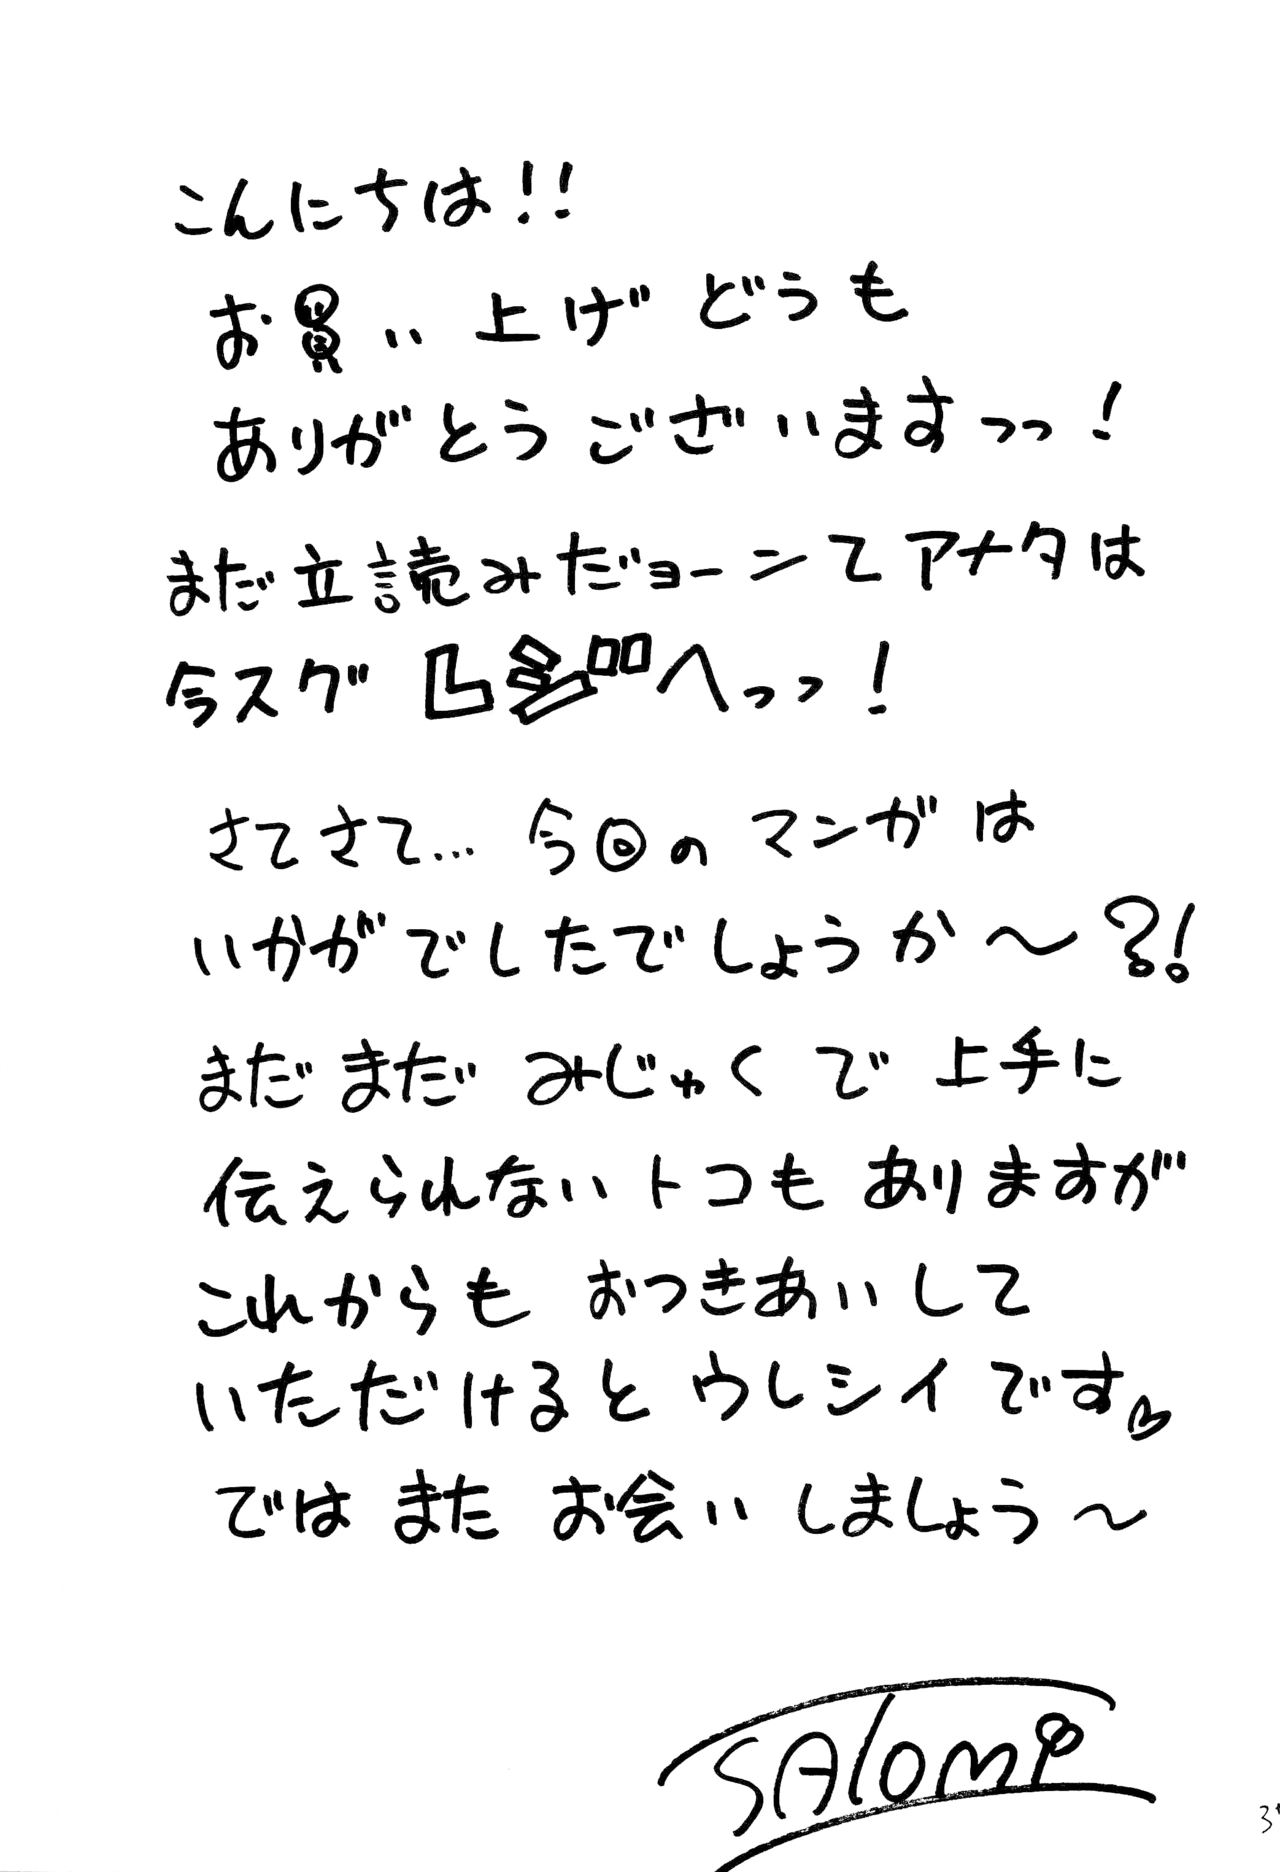 こんにちは!!
お買い上げどうも
ありがとうございますっっ!
まだ立読みだョーンてアナタは
今スグレジへっっ!
さてさて…今回のマンガは
いかがでしたでしょうか〜?!
まだまだみじゅくで上手に
伝えられないトコもありますが
これからもおつきあいして
いただけるとウレシイです♡
ではまたお会いしましょう〜
SAlOMi